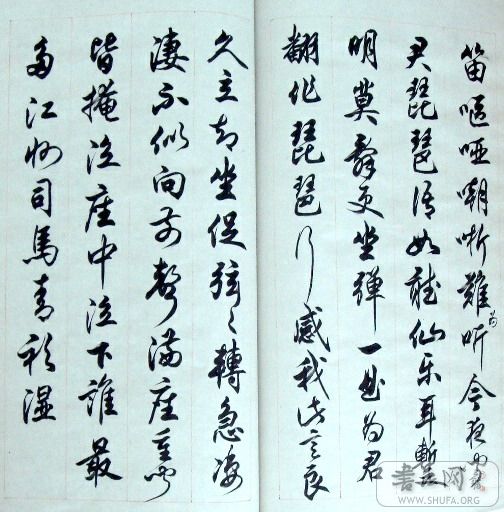 笛嘔啞嘲哳難為听今夜闻
君琵琶语如聽仙乐耳暫
明莫辞更坐彈一曲为君
翻作琵琶行感我此言良
久立却坐促弦々轉急凄
凄不似向前聲满座重闻
皆掩泣座中泣下誰最
多江州司馬青衫湿
书法网
WWW.SHUFA.ORG